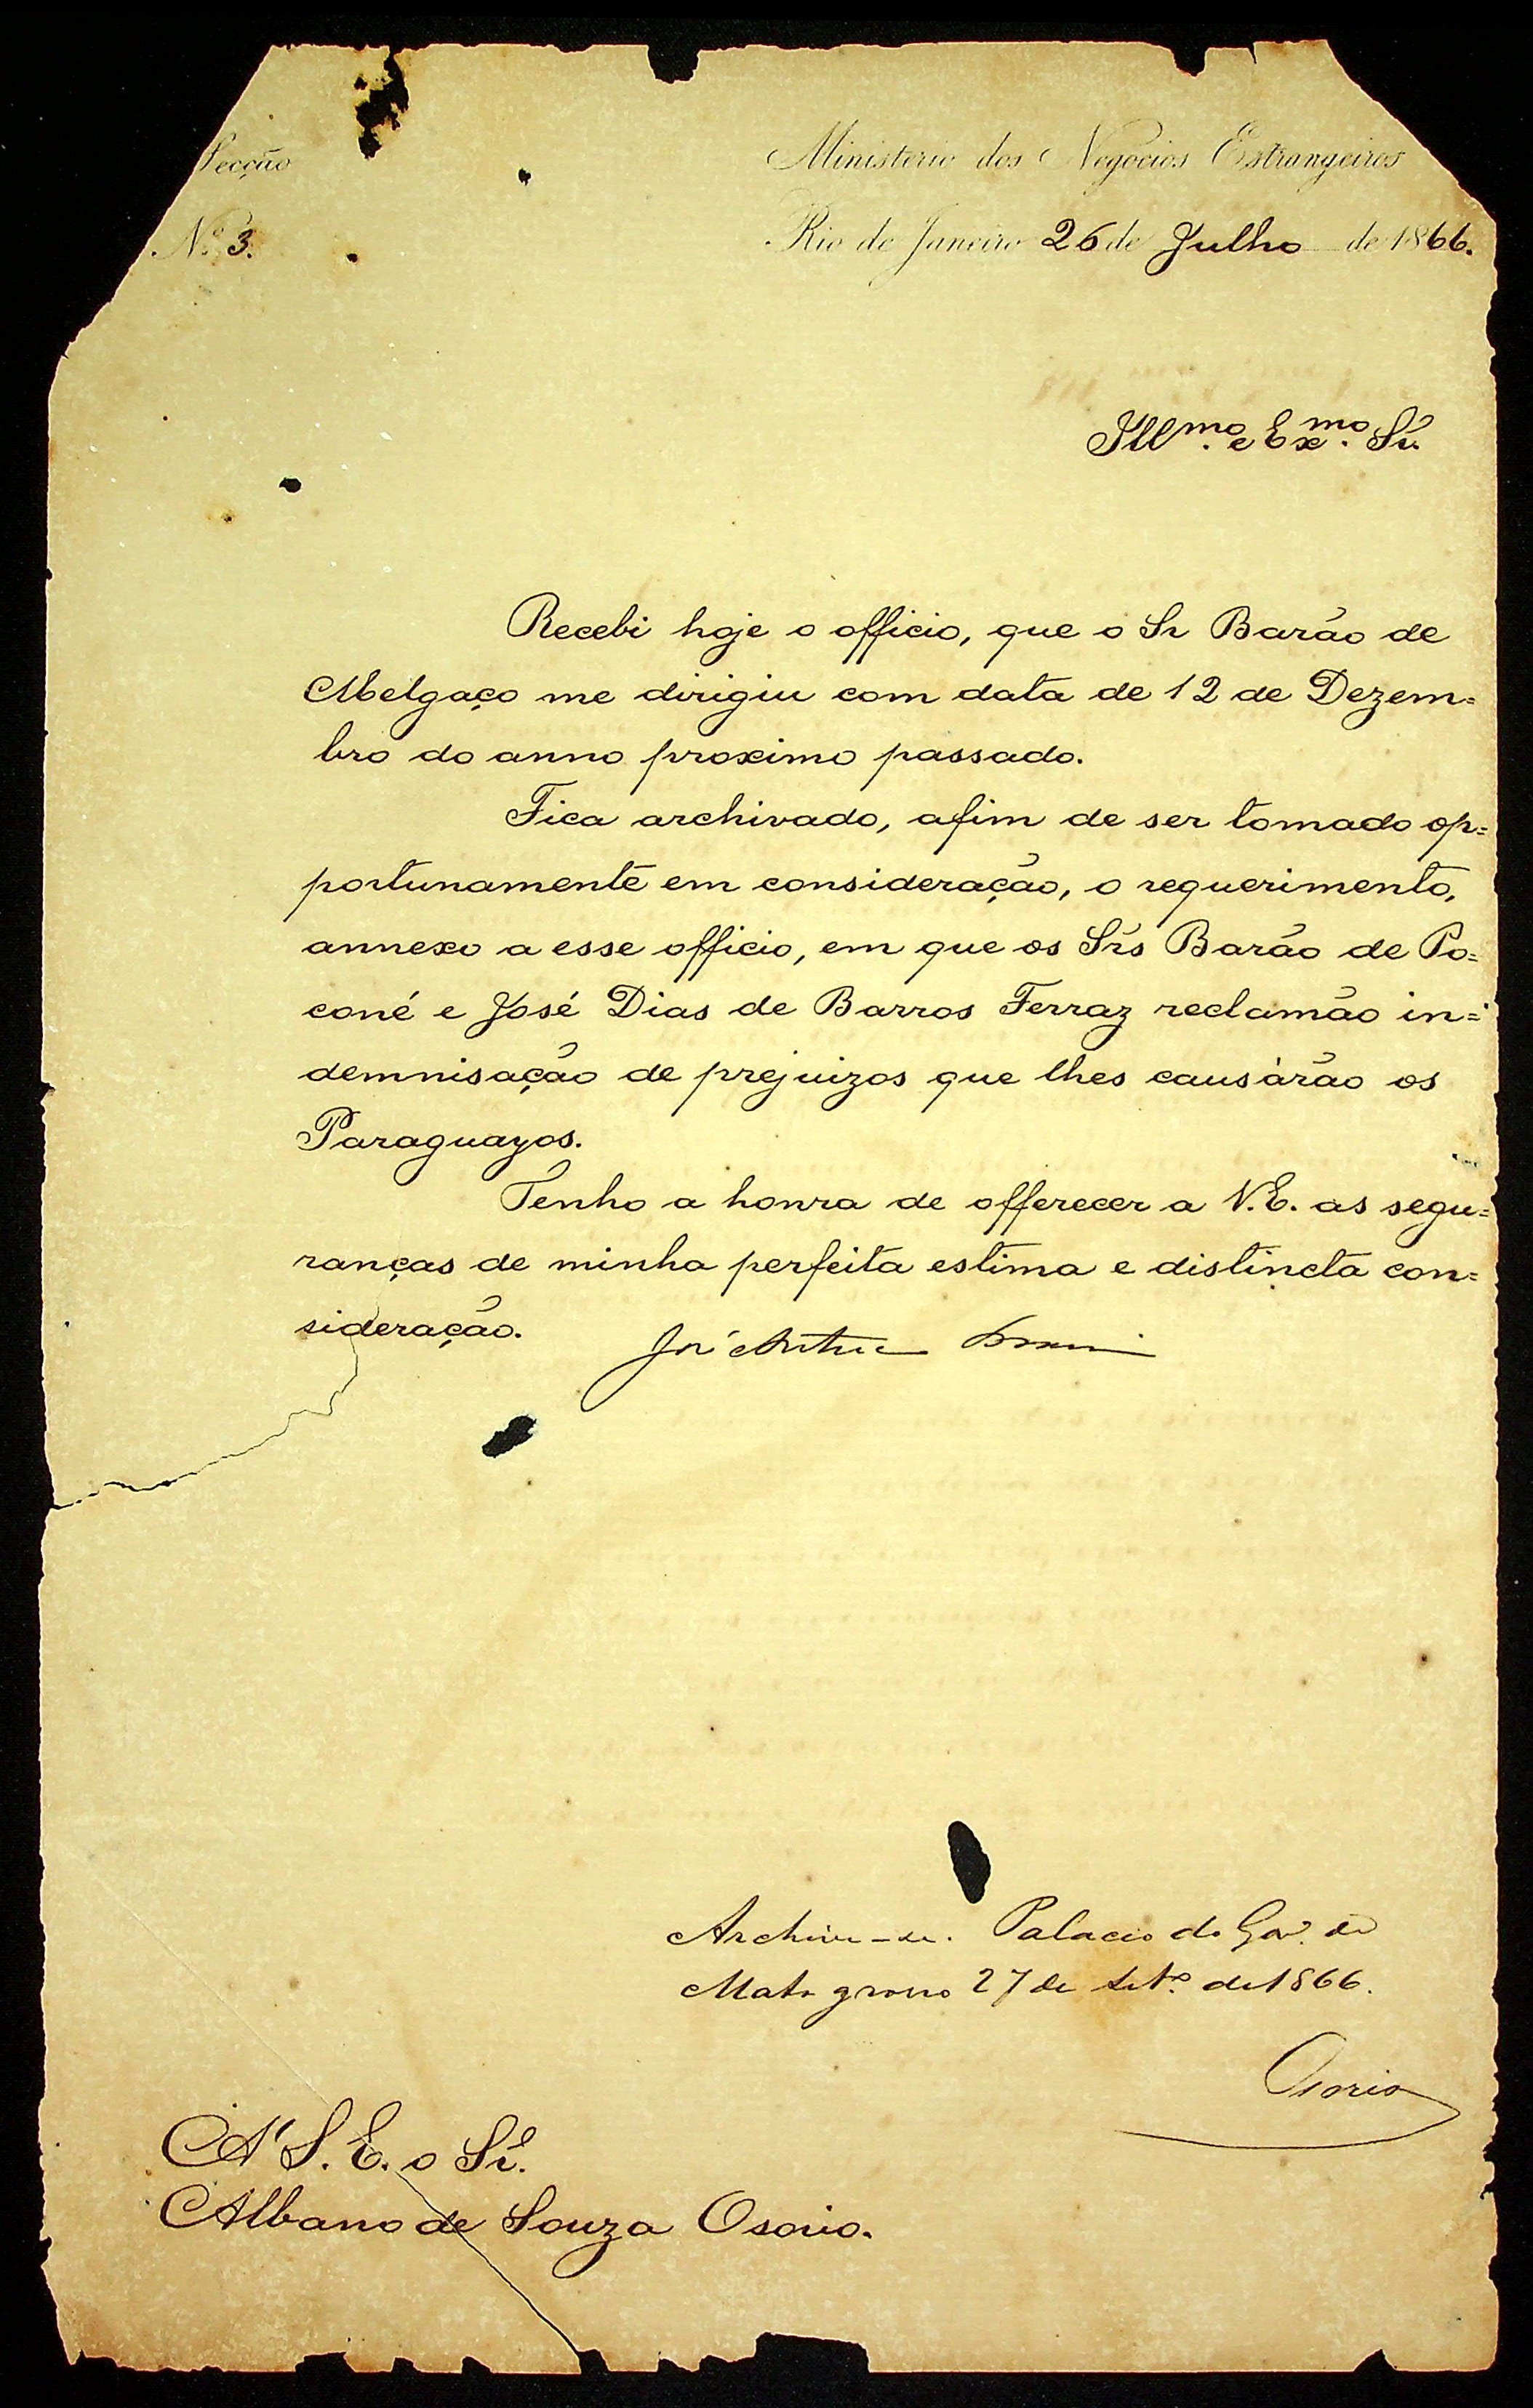 Secção
Ministerio dos Negocios Estrangeiros
Nº 3.
Rio de Janeiro 26 de Julho de 1866.
Illmo. e Exmo. Sr.
Recebi hoje o officio, que o Sr Barão de
Melgaço me dirigiu com data de 12 de Dezem=
bro do anno proximo passado.
Fica archivado, afim de ser tomado op=
portunamente em consideração, o requerimento,
annexo a esse officio, em que os Srs Barão de Po=
coné e José Dias de Barros Ferraz reclamão in=
demnisação de prejuizos que lhes causàrão os
Paraguayos.
Tenho a honra de offerecer a V.E. as segu=
ranças de minha perfeita estima e distincta con=
sideração.
Archive-se. Palacio do Gov. de
Mato grosso 27 de Setº. de 1866.
Osorio
A' S.E. o Sr.
Albano de Souza Osorio.